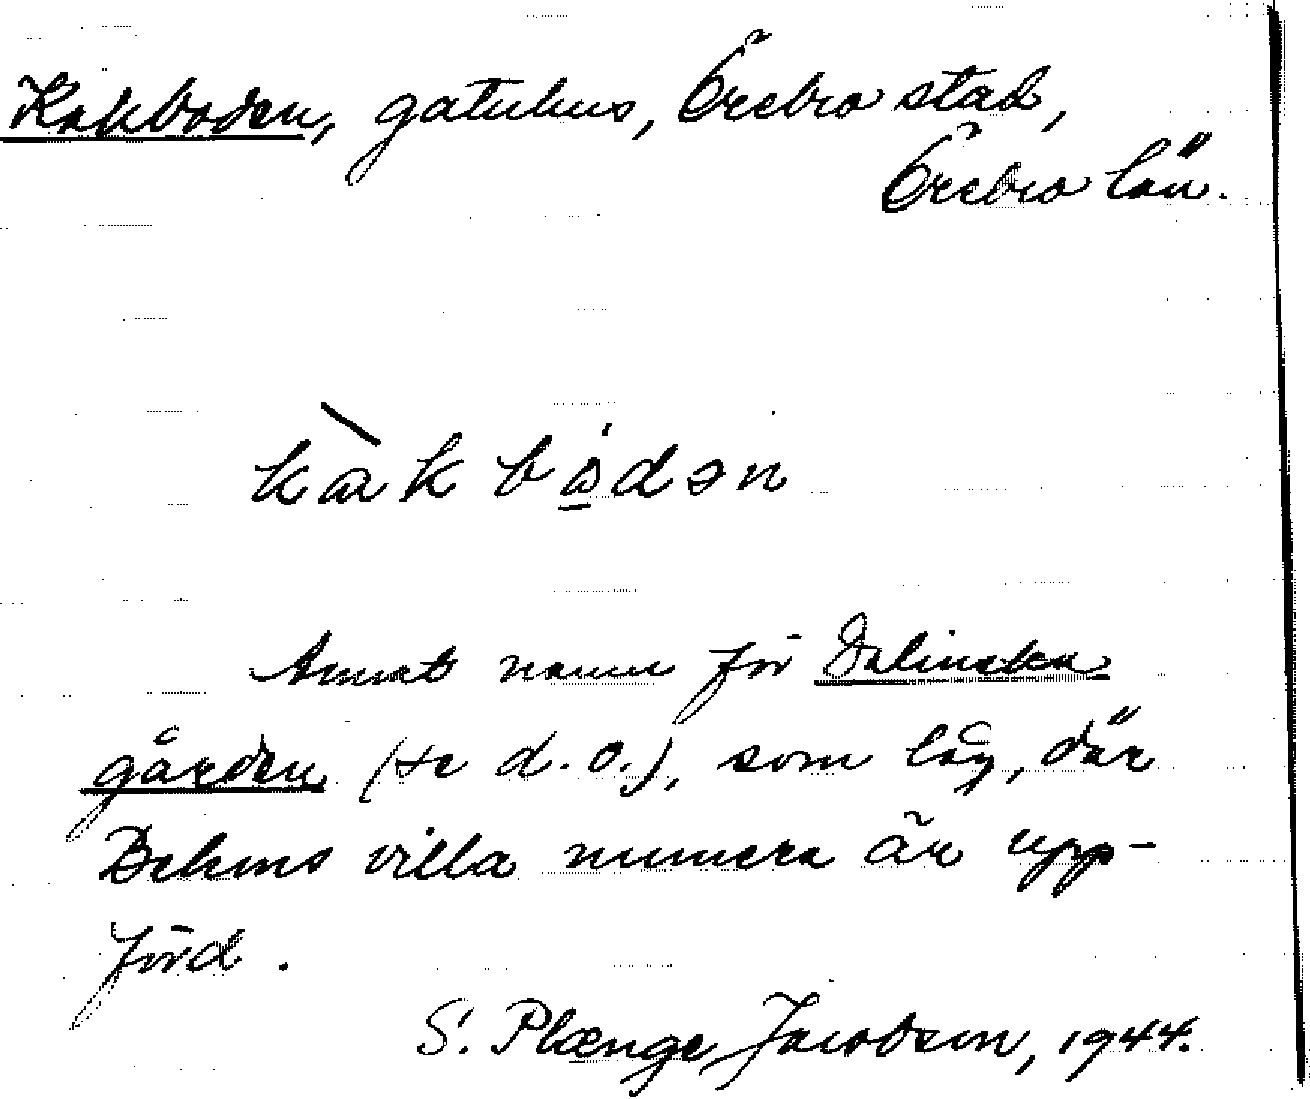 Kakboden, gatuhus, Örebro stad,
Örebro län.
kàkbo̱dən
Annat namn för Dalinska
gården (se d. o.), som låg, där
Behms villa numera är upp-
förd.
S. Plænge Jacobson, 1944.